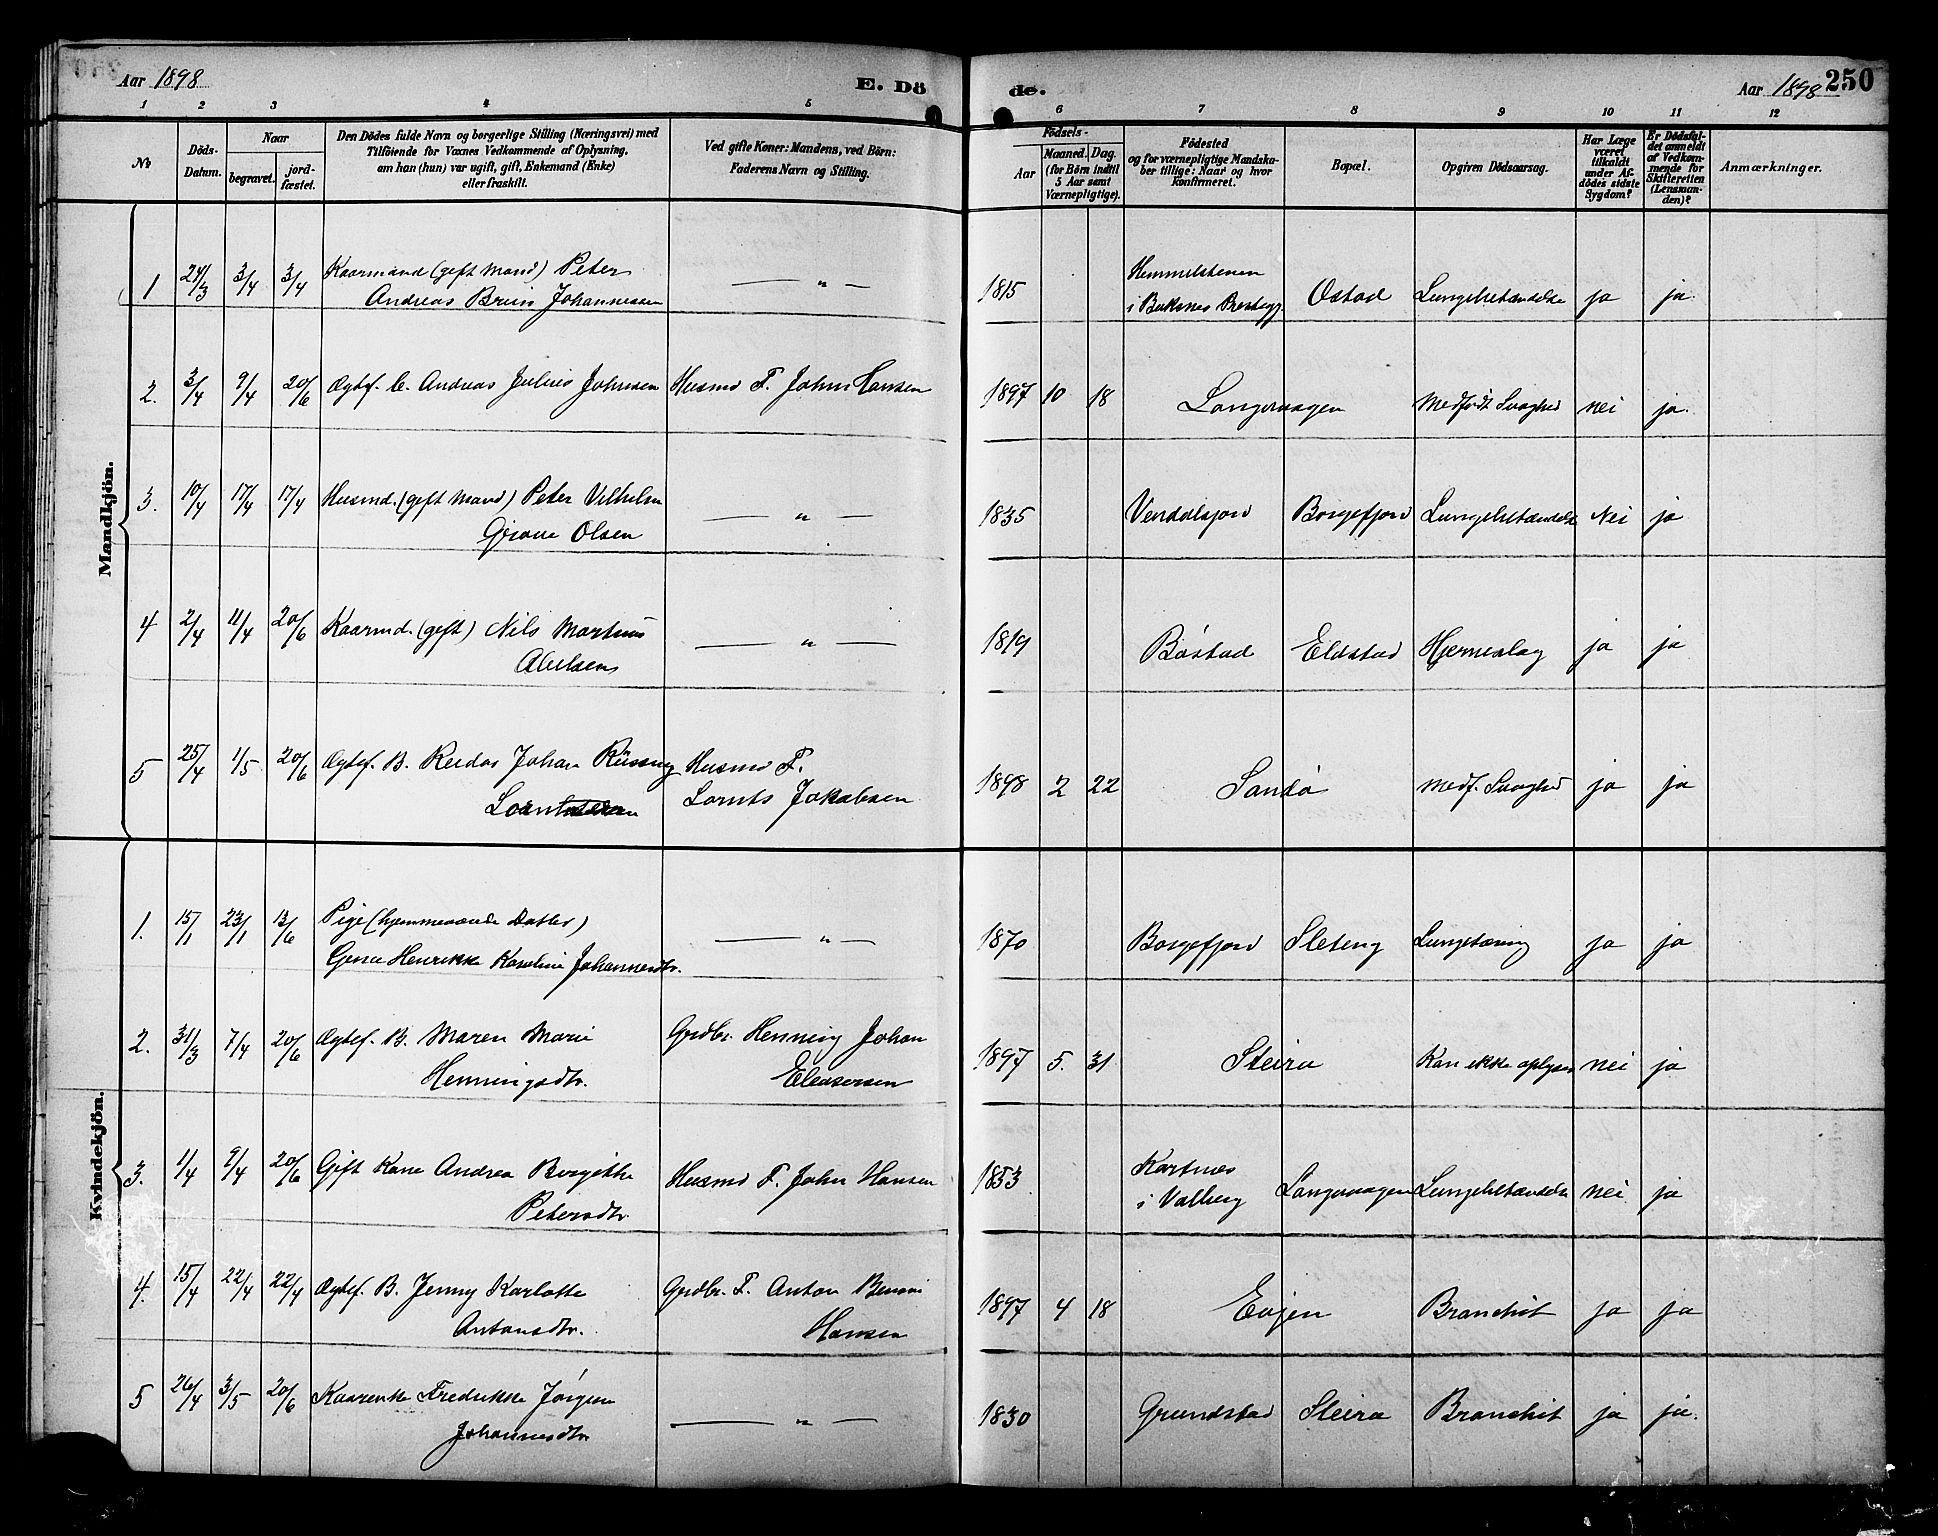 Aar 1898
E. Dö
de.
Aar 1898
250
1 2 3 4 5 6 7 8 9 10 11 12
No
Döds-
Datum.
Naar
begravet.
jord-
fæstet.
Den Dödes fulde Navn og borgerlige Stilling (Næringsvei) med
Tilföiende for Voxnes Vedkommende af Oplysning,
om han (hun) var ugift, gift, Enkemand (Enke)
eller fraskilt.
Ved gifte Koner: Mandens, ved Börn:
Faderens Navn og Stilling.
Födsels-
Aar
Maaned. Dag.
(for Börn indtil
5 Aar samt
Værnepligtige).
Födested
og for værnepligtige Mandska-
ber tillige: Naar og hvor
Konfirmeret.
Bopæl.
Opgiven Dödsaarsag.
Har Læge
været
tilkaldt
under Af-
dödes sidste
Sygdom?
Er Dödsfal-
det anmeldt
af Vedkom-
mende for
Skifteretten
(Lensman-
den)?
Anmærkninger.
Mandkjön.
1 24/3 3/4 3/4 Kaarmand (gift Mand) Peter
Andreas Bruun Johannessen — " — 1815 Hemmelstenen
i Buksnes Prestegj. Ostad Lungebetændelse ja ja.
2. 3/4 9/4 20/6 Ægtef. B. Andreas Julius Johnsen Husmd F. John Hansen 1897 10 18 Langvaagen Medfödt Svaghed nei ja.
3. 10/4 17/4 17/4 Husmd. (gift Mand) Peter Vilhelm
Grove Olsen — " — 1835 Vendalsjord Borgefjord Lungebetændelse Nei ja
4 2/4 11/4 20/6 Kaarmd. (gift) Nils Martinus
Abelsen — " — 1819 Bøstad Eldstad Hjerneslag ja ja
5 25/4 1/5 20/6 Ægtef. B. Reidar Johan
Lorntsen Husmd F.
Lornts Jakobsen 1898 2 22 Sandø Medf. Svaghed ja ja
Kvindekjön.
1. 15/1 23/1 13/6 Pige (hjemmeværende Datter)
Gina Henrikke Karoline Johannesdtr. — " — 1870 Borgefjord Sleteng Lungetæring ja ja
2. 31/3 7/4 20/6 Ægtef. B. Maren Marie
Henningsdtr. Grdbr. Henning Johan
Eleasersen 1897 5. 31 Steira Kan ikke oplyses nei ja
3. 1/4 9/4 20/6 Gift Kone Andrea Borgitha
Petersdtr. Husmd F. John Hansen 1853. Kartnes
i Valberg Langvaagen Lungebetændelse nei ja
4. 15/4 22/4 22/4 Ægtef. B. Jenny Karlotte
Antonsdtr. Grdbr. F. Anton Benoni
Hansen 1897 4 18 Evjen Bronchit ja ja
5 26/4 3/5 20/6 Kaarenke Fredrikke Jørgine
Johannesdtr. — " — 1830 Grundstad Steira Bronchit ja ja.